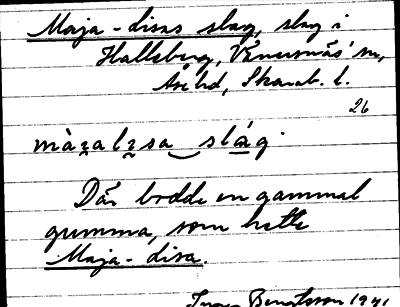 Maja-disas slag, slag i
Halleberg, Vänersnäs' sn,
Åse hd, Skarab. l.
26
Där bodde en gammal
gumma, som hette
Maja-disa.
Bengtsson 1941